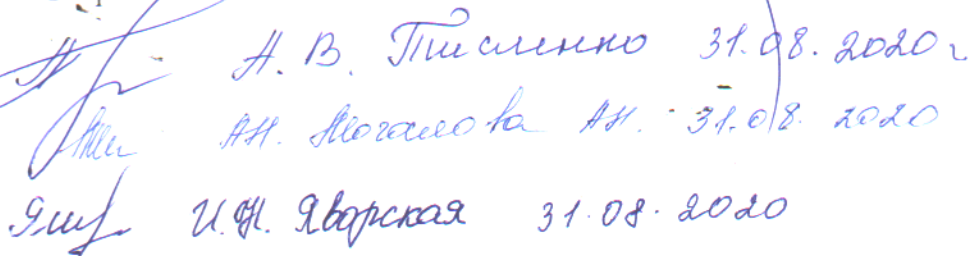 А.В. Письменко 31.08.2020 г
А.Н. Могалова А.Н. 31.08.2020
И.Н. Яворская 31.08.2020